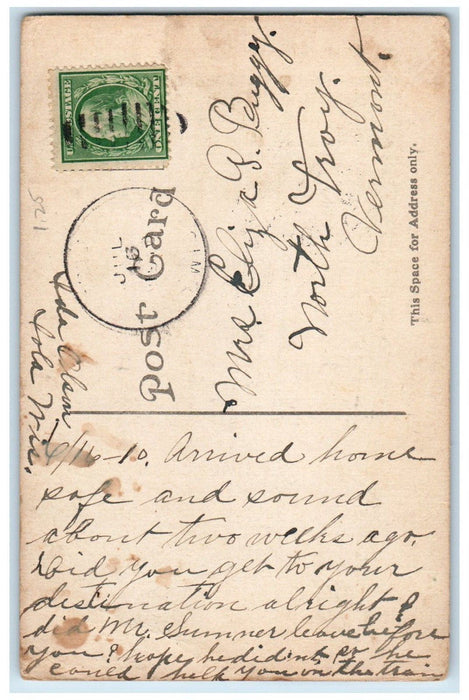 U.S. POSTAGE
ONE CENT
Post Card
JUL
16
AM
125
Mrs. Eliza P. Buggy.
North Troy.
Vermont.
This Space for Address only.
Ida Olson
Iola Wis.
/16-10. Arrived home
safe and sound
about two weeks ago.
Did you get to your
destination alright?
did Mr. Sumner leave before
you? I hope he did'nt, so he
could help you on the train